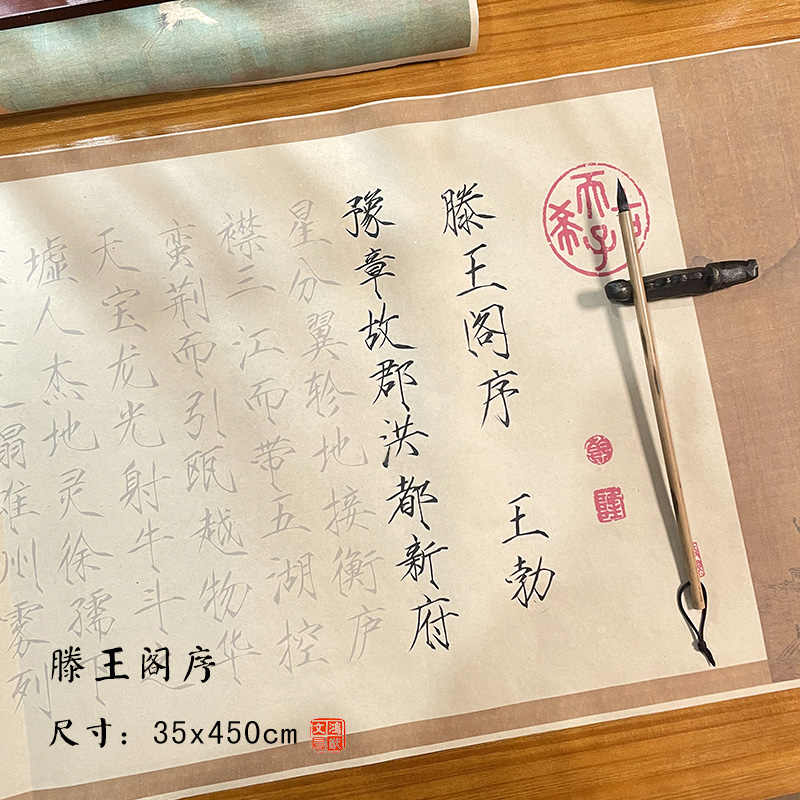 古希天子
滕王阁序 王勃
豫章故郡洪都新府
星分翼轸地接衡庐
襟三江而带五湖控
蛮荆而引瓯越物华
天宝龙光射牛斗之
墟人杰地灵徐孺下
州雾列
滕王阁序
尺寸：35x450cm